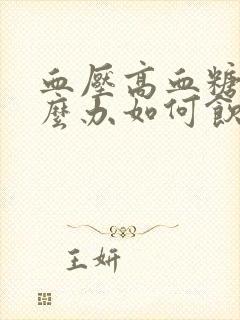 血壓高血糖
麼办如何飲
王妍